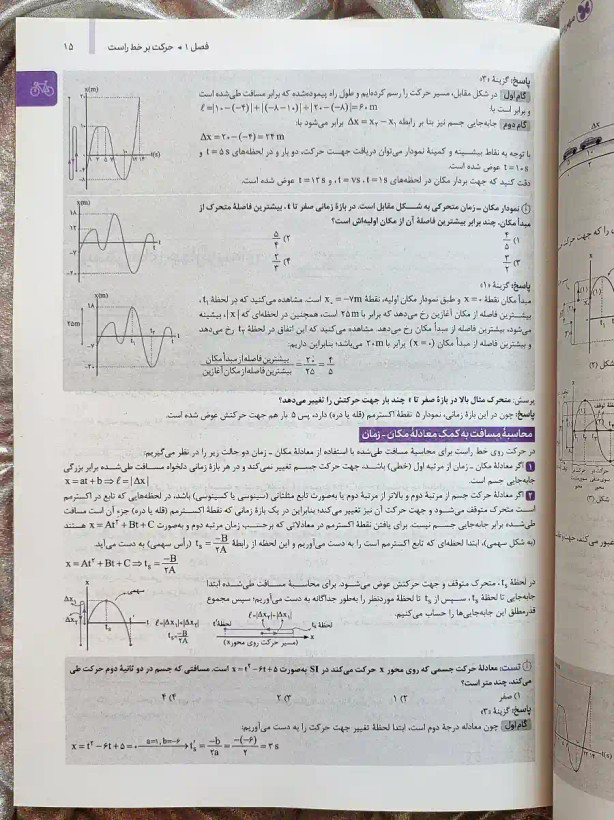 فصل ۱ • حرکت بر خط راست | ۱۵
پاسخ: گزینهٔ «۳»
گام اول در شکل مقابل، مسیر حرکت را رسم کرده‌ایم و طول راه پیموده‌شده که برابر مسافت طی‌شده است
و برابر است با: ℓ = |۱۰ − (−۴)| + |(−۸ − ۱۰)| + |۲۰ − (−۸)| = ۶۰ m
گام دوم جابه‌جایی جسم نیز بنا بر رابطه Δx = x₂ − x₁ برابر می‌شود با:
Δx = ۲۰ − (−۴) = ۲۴ m
با توجه به نقاط بیشینه و کمینهٔ نمودار می‌توان دریافت جهت حرکت، دو بار و در لحظه‌های t = ۵ s و
t = ۱۰ s عوض شده است.
دقت کنید که جهت بردار مکان در لحظه‌های t = ۱ s، t = ۷ s و t = ۱۲ s عوض شده است.
نمودار مکان - زمان متحرکی به شکل مقابل است. در بازهٔ زمانی صفر تا t، بیشترین فاصلهٔ متحرک از
مبدأ مکان، چند برابر بیشترین فاصلهٔ آن از مکان اولیه‌اش است؟
۱) ۴/۵ ۲) ۵/۴
۳) ۳/۲ ۴) ۲/۳
پاسخ: گزینهٔ «۱»
مبدأ مکان نقطهٔ x = ۰ و طبق نمودار مکان اولیه، نقطهٔ x₀ = −۷m است. مشاهده می‌کنید که در لحظهٔ t₁،
بیشترین فاصله از مکان آغازین رخ می‌دهد که برابر با ۲۵ m است، همچنین در لحظه‌ای که |x| بیشینه
می‌شود، بیشترین فاصله از مبدأ مکان رخ می‌دهد. مشاهده می‌کنید که این اتفاق در لحظهٔ t₂ رخ می‌دهد
و بیشترین فاصله از مبدأ مکان (x = ۰) برابر با ۲۰m می‌باشد؛ بنابراین داریم:
بیشترین فاصله از مبدأ مکان / بیشترین فاصله از مکان آغازین = ۲۰/۲۵ = ۴/۵
پرسش: متحرک مثال بالا در بازهٔ صفر تا t چند بار جهت حرکتش را تغییر می‌دهد؟
پاسخ: چون در این بازهٔ زمانی، نمودار ۵ نقطهٔ اکسترمم (قله یا دره) دارد، پس ۵ بار هم جهت حرکتش عوض شده است.
محاسبهٔ مسافت به کمک معادلهٔ مکان - زمان
در حرکت روی خط راست برای محاسبهٔ مسافت طی‌شده با استفاده از معادلهٔ مکان - زمان دو حالت زیر را در نظر می‌گیریم:
۱ اگر معادلهٔ مکان - زمان از مرتبه اول (خطی) باشد، جهت حرکت جسم تغییر نمی‌کند و در هر بازهٔ زمانی دلخواه مسافت طی‌شده برابر بزرگی
جابه‌جایی جسم است. x = at + b ⇒ ℓ = |Δx|
۲ اگر معادلهٔ حرکت جسم از مرتبهٔ دوم و بالاتر از مرتبهٔ دوم یا به‌صورت تابع مثلثاتی (سینوسی یا کسینوسی) باشد، در لحظه‌هایی که تابع در اکسترمم
است متحرک متوقف می‌شود و جهت حرکت آن نیز تغییر می‌کند؛ بنابراین در یک بازهٔ زمانی که نقطهٔ اکسترمم (قله یا دره) جزء آن است مسافت
طی‌شده برابر جابه‌جایی جسم نیست. برای یافتن نقطهٔ اکسترمم در معادلاتی که برحسب زمان مرتبه دوم و به‌صورت x = At² + Bt + C هستند
(به شکل سهمی)، ابتدا لحظه‌ای که تابع اکسترمم است را به دست می‌آوریم و این لحظه از رابطهٔ tₛ = −B/۲A (رأس سهمی) به دست می‌آید.
x = At² + Bt + C ⇒ tₛ = −B/۲A
در لحظهٔ tₛ، متحرک متوقف و جهت حرکتش عوض می‌شود. برای محاسبهٔ مسافت طی‌شده ابتدا
جابه‌جایی تا لحظهٔ tₛ، سپس از tₛ تا لحظهٔ موردنظر را به‌طور جداگانه به دست می‌آوریم؛ سپس مجموع
قدرمطلق این جابه‌جایی‌ها را حساب می‌کنیم.
سهمی
ℓ = |Δx₁| + |Δx₂|
tₛ = −B/۲A
ℓ = |Δx₁| + |Δx₂|
(مسیر حرکت روی محور x)
تست: معادلهٔ حرکت جسمی که روی محور x حرکت می‌کند در SI به‌صورت x = t² − ۶t + ۵ است. مسافتی که جسم در دو ثانیهٔ دوم حرکت طی
می‌کند، چند متر است؟
۱) صفر ۲) ۱ ۳) ۲ ۴) ۴
پاسخ: گزینهٔ «۳»
گام اول چون معادله درجهٔ دوم است، ابتدا لحظهٔ تغییر جهت حرکت را به دست می‌آوریم:
x = t² − ۶t + ۵ = ۰ a=۱, b=−۶ → tₛ = −b/۲a = −(−۶)/۲ = ۳ s